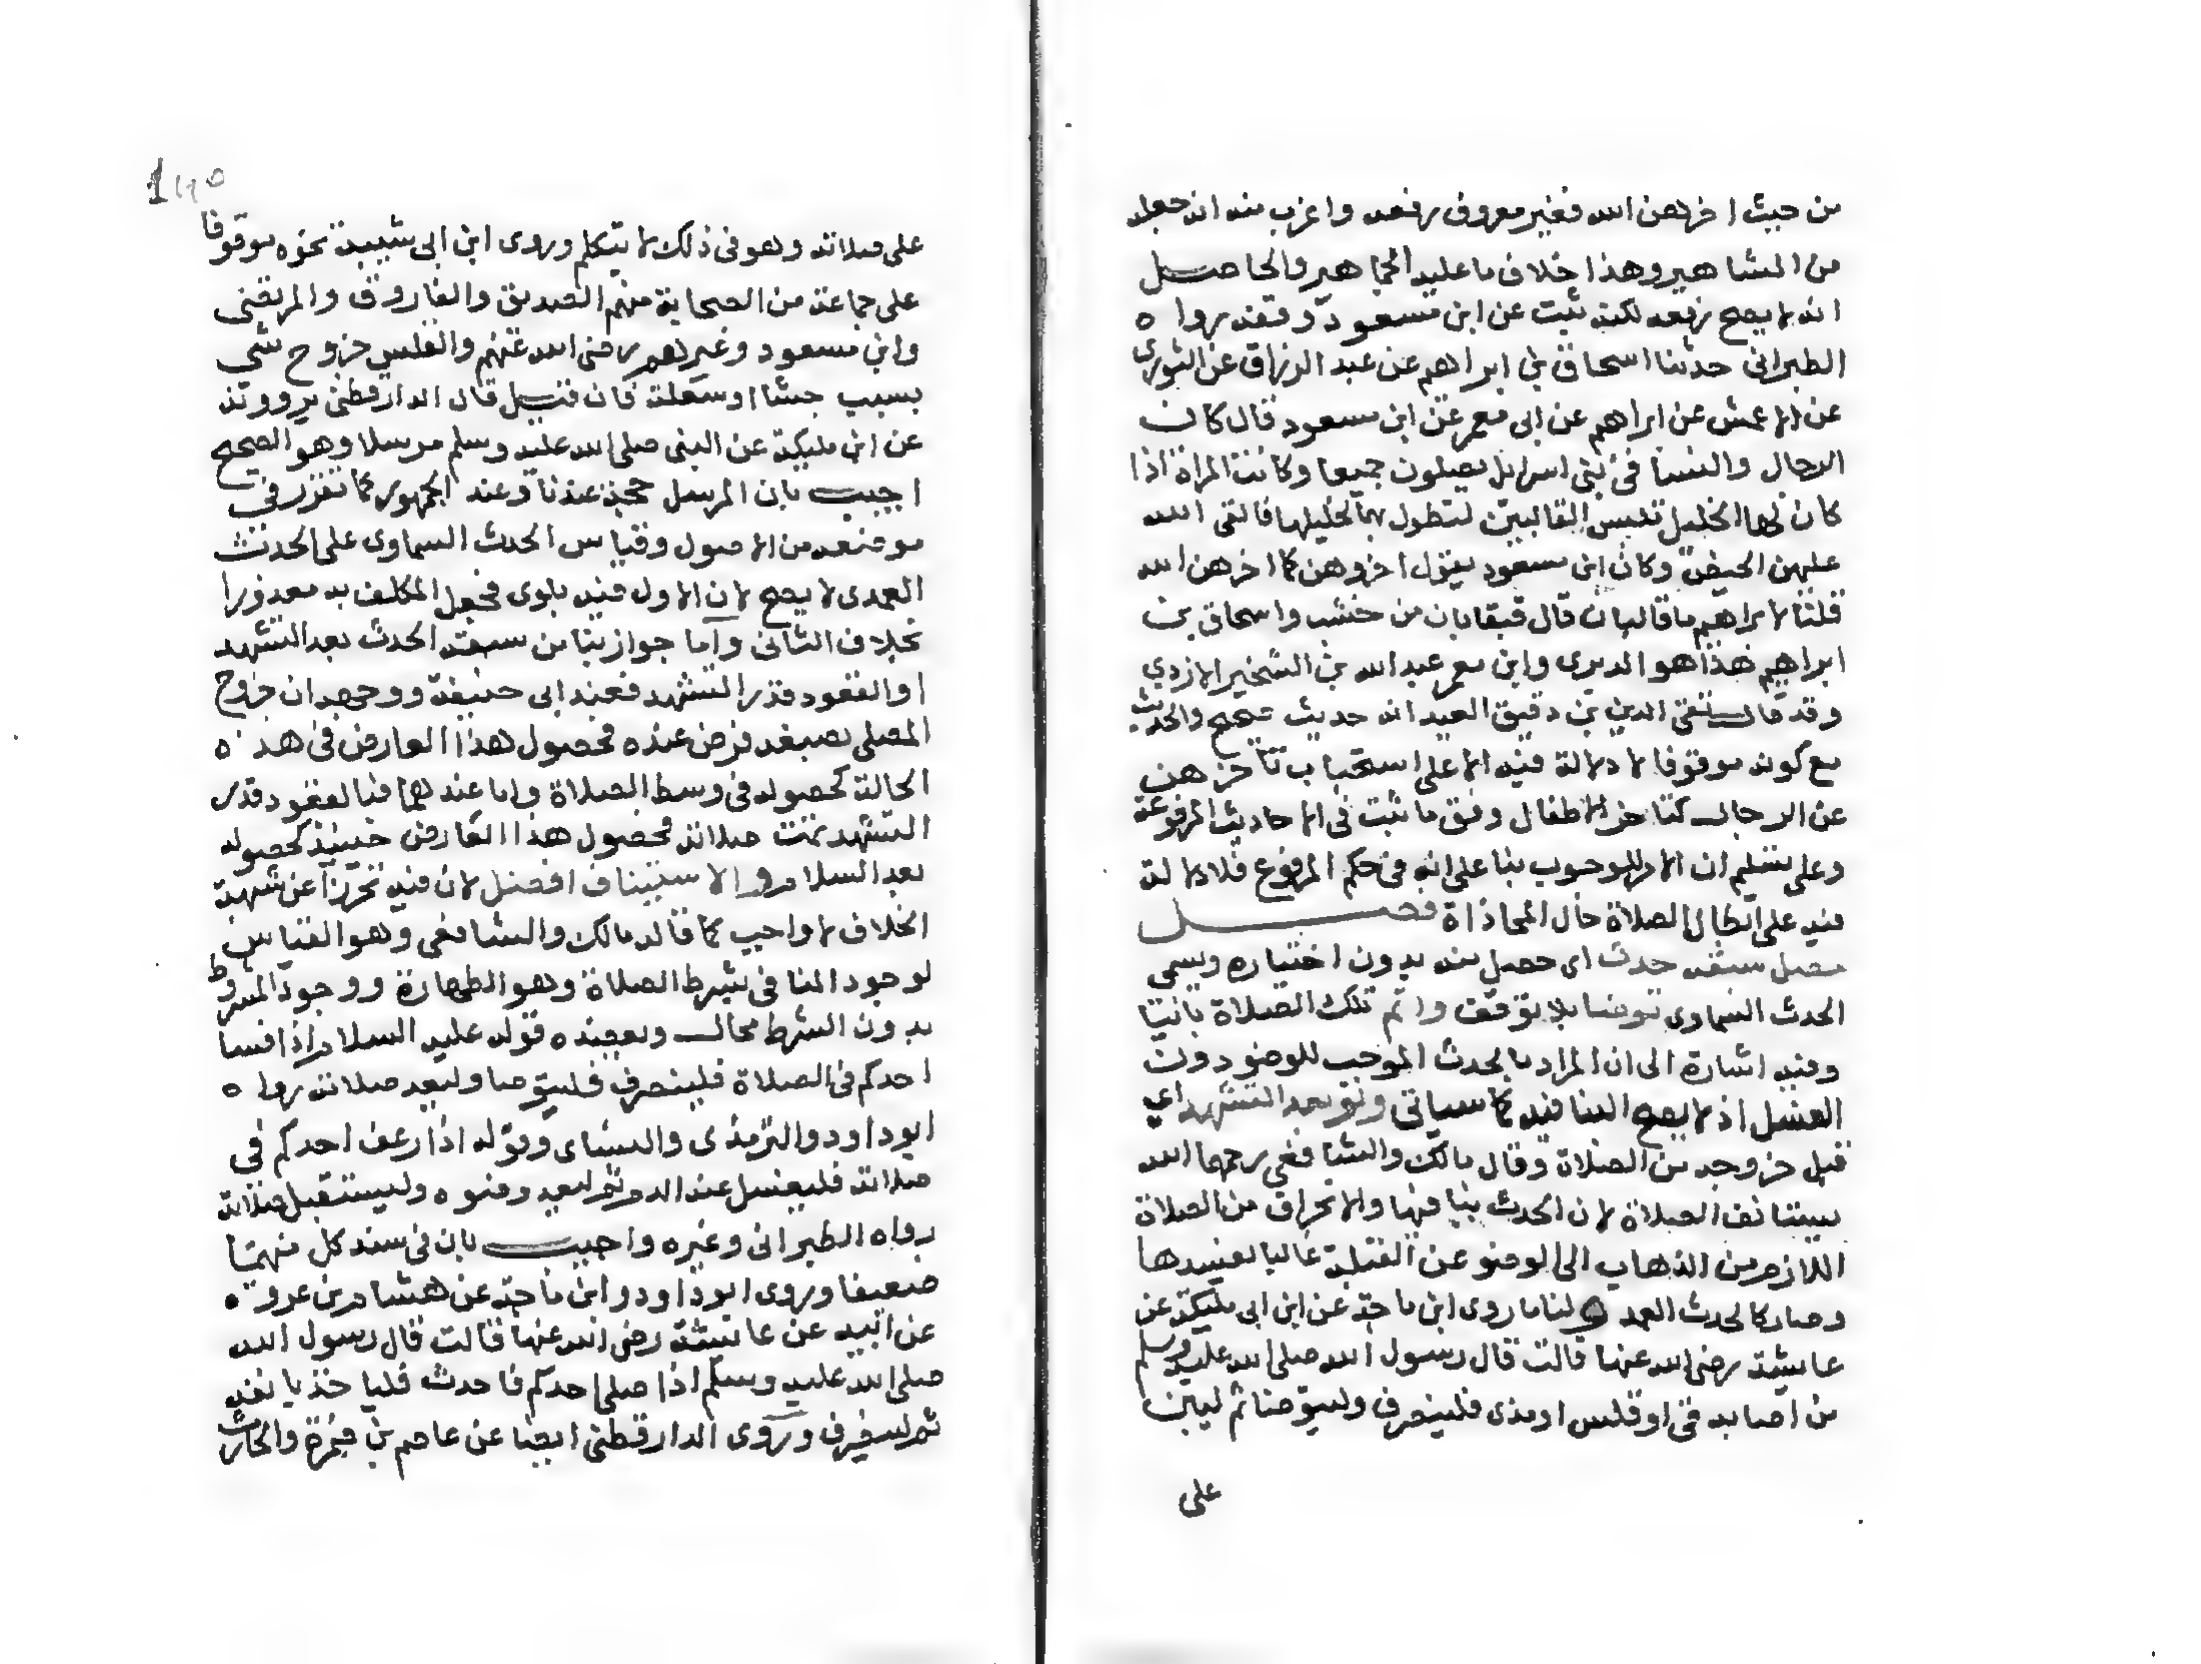 من حيث اخرهن الله فغير معروف رفعه واغرب منه انه جعله
من المشاهير وهذا خلاف ما عليه الجماهير والحاصل
انه لا يصح رفعه لكنه ثبت عن ابن مسعود وقفه رواه
الطبراني حدثنا اسحاق بن ابراهيم عن عبد الرزاق عن الثوري
عن الاعمش عن ابراهيم عن ابي معمر عن ابن مسعود قال كان
الرجال والنسا في بني اسرائل يصلون جميعا وكانت المراة اذا
كان لها الخليل تلبس القالبين لتطول بهما لخليلها فالقى الله
عليهن الحيض وكان ابن مسعود يقول اخروهن كما اخرهن الله
قلنا لابراهيم ما قالبان قال قبقابان من خشب واسحاق بن
ابراهيم هذا هو الدبري وابن معمر عبد الله بن الشخير الازدي
وقد قال تقي الدين بن دقيق العيد انه حديث صحيح والحديث
مع كونه موقوفا لا دلالة فيه الا على استحباب تاخرهن
عن الرجال كتاخر الاطفال وفق ما ثبت في الاحاديث المرفوعة
وعلى تسليم ان الامر للوجوب بنا على انه في حكم المرفوع فلا دلالة
فيه على ابطال الصلاة حال المحاذاة فصل
مصل سبقه حدث اي حصل منه بدون اختياره ويسمى
الحدث السماوي توضا بلا توقف واتم تلك الصلاة بانيا
وفيه اشارة الى ان المراد بالحدث الموجب للوضو دون
الغسل اذ لا يصح البنا فيه كما سياتي ولو بعد التشهد اي
قبل خروجه من الصلاة وقال مالك والشافعي رحمهما الله
يستانف الصلاة لان الحدث ينافيها والانحراف من الصلاة
اللازم من الذهاب الى الوضو عن القبلة غالبا يفسدها
وصار كالحدث العمد ولنا ما روى ابن ماجة عن ابن ابي مليكة عن
عايشة رضي الله عنها قالت قال رسول الله صلى الله عليه وسلم
من اصابه قي او قلس او مذي فلينصرف وليتوضا ثم ليبن
على
على صلاته وهو في ذلك لا يتكلم وروى ابن ابي شيبة نحوه موقوفا
على جماعة من الصحابة منهم الصديق والفاروق والمرتضى
وابن مسعود وغيرهم رضي الله عنهم والقلس خروج شي
بسبب جشا او سعلة فان قيل قال الدارقطني يروونه
عن ابن مليكة عن النبي صلى الله عليه وسلم مرسلا وهو الصحيح
اجيب بان المرسل حجة عندنا وعند الجمهور كما تقرر في
موضعه من الاصول وقياس الحدث السماوي على الحدث
العمدي لا يصح لان الاول فيه بلوى فجعل المكلف به معذورا
بخلاف الثاني واما جواز بنا من سبقه الحدث بعد التشهد
او القعود قدر التشهد فعند ابي حنيفة ووجهه ان خروج
المصلي بصنعه فرض عنده فحصول هذا العارض في هذه
الحالة كحصوله في وسط الصلاة واما عندهما فبالقعود قدر
التشهد تمت صلاته فحصول هذا العارض حينئذ كحصوله
بعد السلام والاستيناف افضل لان فيه تحرزا عن شبهة
الخلاف لا واجب كما قاله مالك والشافعي وهو القياس
لوجود المنافي لشرط الصلاة وهو الطهارة ووجود المشروط
بدون الشرط محال ويعضده قوله عليه السلام اذا فسا
احدكم في الصلاة فلينصرف فليتوضا وليعد صلاته رواه
ابو داود والترمذي والنساي وقوله اذا رعف احدكم في
صلاته فليغسل عنه الدم ثم ليعد وضوه وليستقبل صلاته
رواه الطبراني وغيره واجيب بان في سند كل منهما
ضعيفا وروى ابو داود وابن ماجة عن هشام بن عروة
عن ابيه عن عائشة رضي الله عنها قالت قال رسول الله
صلى الله عليه وسلم اذا صلى احدكم فاحدث فلياخذ بانفه
ثم لينصرف وروى الدارقطني ايضا عن عاصم بن ضمرة والحارث